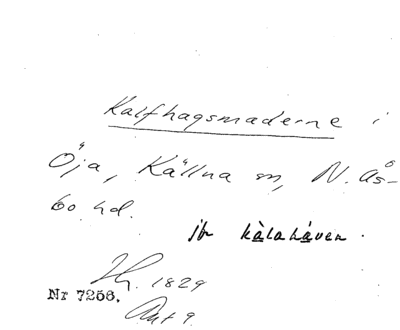 Kalfhagsmaderne i
Öja, Källna sn, N. Ås-
bo hd.
jfr kàlahàven.
Hg. 1829
Nr 7256.
Akt 9.